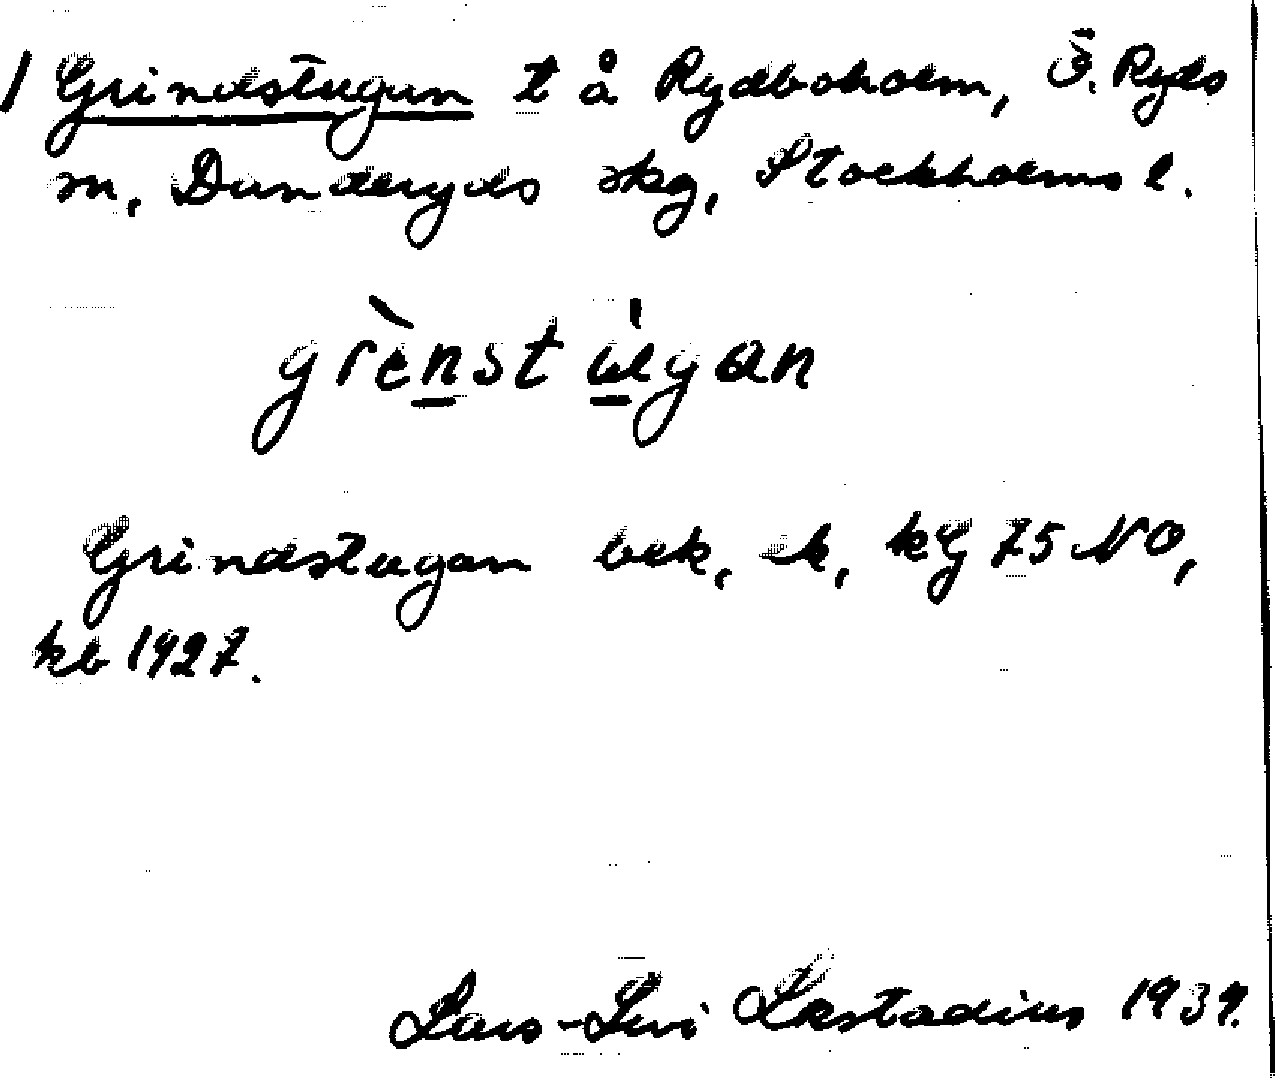 / Grindstugan t å Rydboholm, Ö. Ryds
sn, Danderyds skg, Stockholms l.
grènstùgan
Grindstugan bek, ek, kG 75 NO,
kb 1927.
Lars-Levi Læstadius 1939.